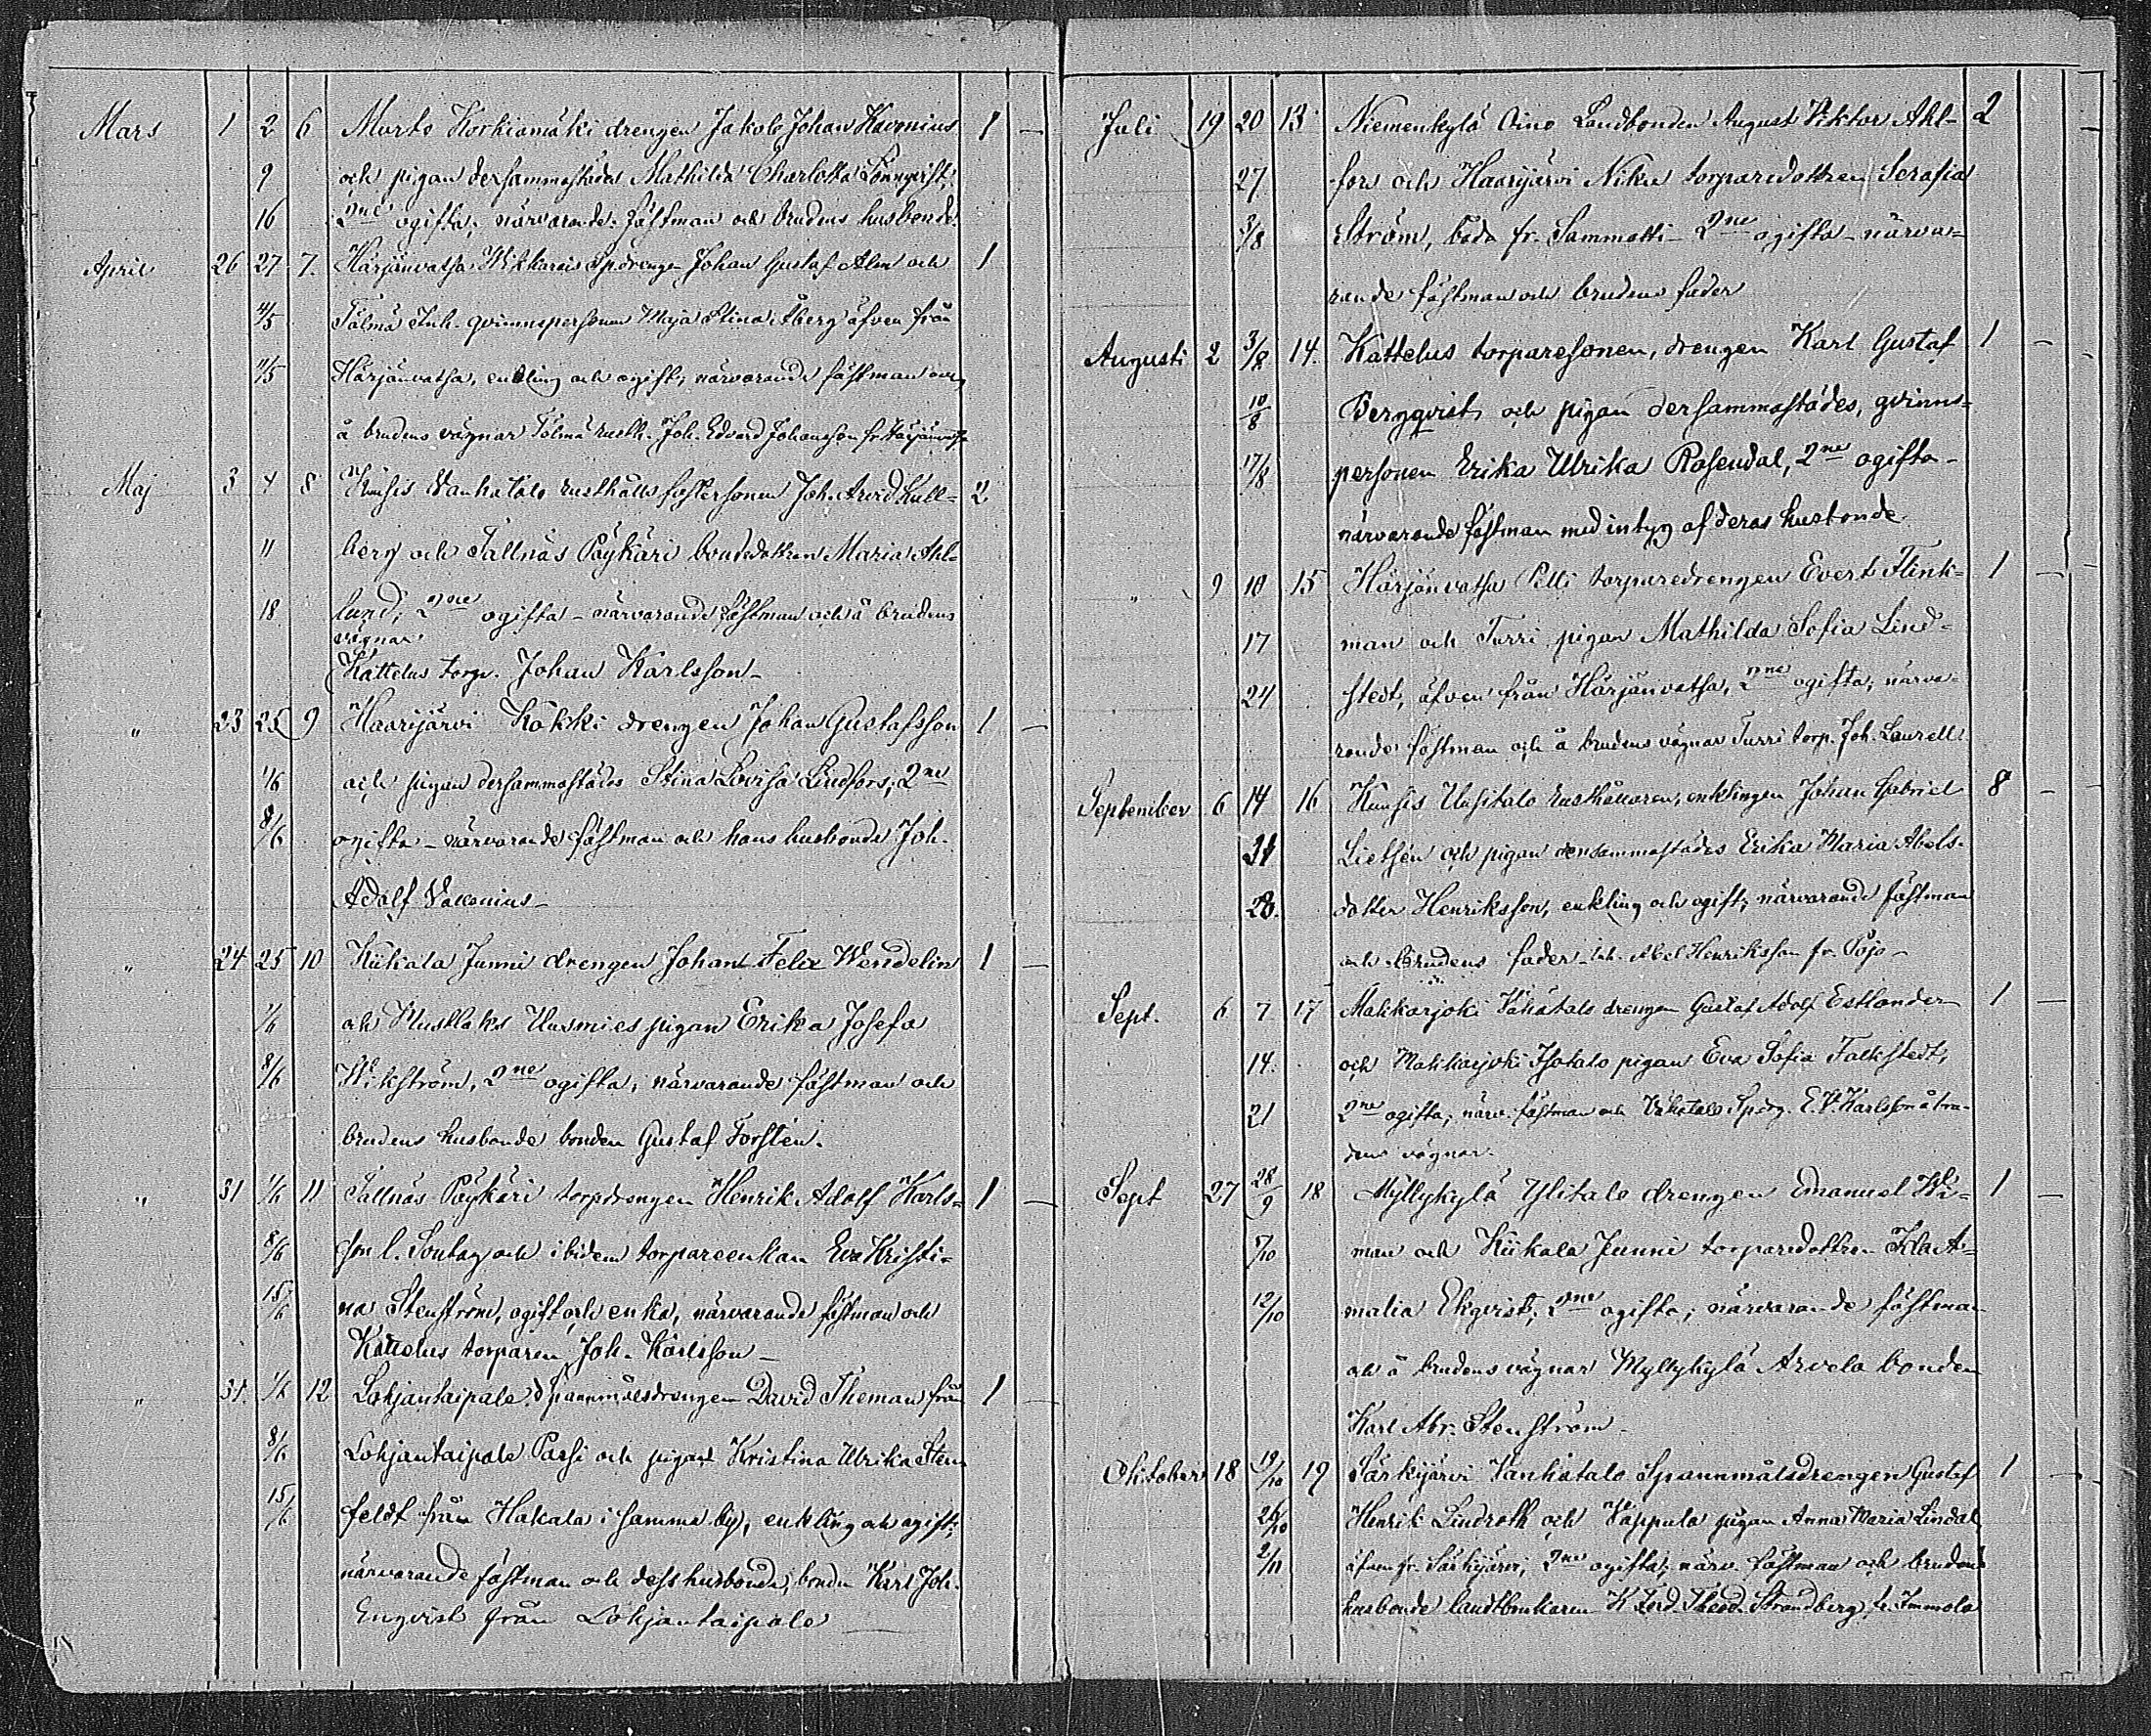 Mars 1 2 6 Murto Korkiamäki drengen Jakob Johan Havonius 1 —
9 och pigan dersammastädes Mathilda Charlotta Lönnqvist,
16 2ne ogifta; närvarande: fästman och brudens husbonde.
April 26 27 7. Härjänvatsa Wikkarais Spdrengen Johan Gustaf Alen och 1
4/5 Tölmä Inh. qvinnspersonen Maja Stina Åberg äfven från
11/5 Härjänvatsa, enkling och ogift; närvarande fästman och
å brudens vägnar Tölmä rusth. Joh. Edvard Johansson fr. Härjänvatsa
Maj 3 4 8 Kuusis Vanhatalo rusthålls fostersonen Joh. Arvid Kull= 2
11 berg och Tallnäs Pöykäri bondedottren Maria Ahl=
18 lund; 2ne ogifta – närvarande fästman och å brudens
vägnar
Kattelus torp. Johan Karlsson –
" 23 25 9 Haarijärvi Kökki drengen Johan Gustafsson 1 —
1/6 och pigan dersammastädes Stina Lovisa Lindfors; 2ne
8/6 ogifta – närvarande fästman och hans husbonde Joh.
Adolf Vallenius –
" 24 25 10 Kiikala Junni drengen Johan Felix Wendelin 1 —
1/6 och Mustlaks Uusmies pigan Erika Josefa
8/6 Wikström, 2ne ogifta; närvarande fästman och
brudens husbonde bonden Gustaf Forstén.
" 31 1/6 11 Tallnäs Pöykäri torpdrengen Henrik Adolf Karls= 1 —
8/6 son l. Sontag och ibidem torpareenkan Eva Kristi=
15/6 na Stenström, ogift och enka, närvarande fästman och
Kattelus torparen Joh. Karlsson –
" 31. 1/6 12 Lohjantaipale Spannmålsdrengen David Theman från 1 —
8/6 Lohjantaipale Passi och pigan Kristina Ulrika Sten
15/6 feldt från Hakala i samma by, enkling och ogift;
närvarande fästman och dess husbonde, bonde Karl Joh.
Enqvist från Lohjantaipale
Juli 19 20 13 Niemenkylä Aino Landbonden August Viktor Ahl- 2 —
27 fors och Haarijärvi Niku torparedottren Serafia
3/8 Ström, båda fr. Sammatti – 2ne ogifta – närva=
rande fästman och brudens fader
Augusti 2 3/8 14. Kattelus torparesonen, drengen Karl Gustaf 1 —
10/8 Bergqvist och pigan dersammastädes, qvinns=
17/8 personen Erika Ulrika Rosendal, 2ne ogifta –
närvarande fästman med intyg af deras husbonde
" 9 10 15 Härjänvatsa Pilli torparedrengen Evert Flink= 1 —
17 man och Turri pigan Mathilda Sofia Lind=
24 stedt, äfven från Härjänvatsa, 2ne ogifta; närva-
rande fästman och å brudens vägnar Turri torp. Joh. Laurell
September 6 14 16 Kuusis Uusitalo rusthållaren, enklingen Johan Gabriel 8 —
21 Lietsén och pigan densammastädes Erika Maria Abels-
28. dotter Henriksson, enkling och ogift; närvarande fästman
och brudens fader Abel Henriksson fr. Pojo –
Sept. 6 7 17 Makkarjoki Vähätalo drengen Gustaf Adolf Estlander 1 —
14. och Makkarjoki Isotalo pigan Eva Sofia Falkstedt,
21 2ne ogifta; närv. fästman och Vähätalo Spdrg. E. V. Karlsson å bru-
dens vägnar.
Sept 27 28/9 18 Myllykylä Ylitalo drengen Emanuel Wi= 1 —
5/10 man och Kiikala Junni torparedottren Ida A=
12/10 malia Ekqvist; 2ne ogifta; närvarande fästman
och å brudens vägnar Myllykylä Arvela bonden
Karl Abr. Stenström –
Oktober 18 19/10 19 Särkijärvi Vanhatalo Spannmålsdrengen Gustaf 1 —
26/10 Henrik Lindroth och Wappula pigan Anna Maria Lindal,
2/11 äfven fr. Särkijärvi, 2ne ogifta; närv. fästman och brudens
husbonde landtbrukaren K. Ferd. Theod. Strandberg fr. Immola